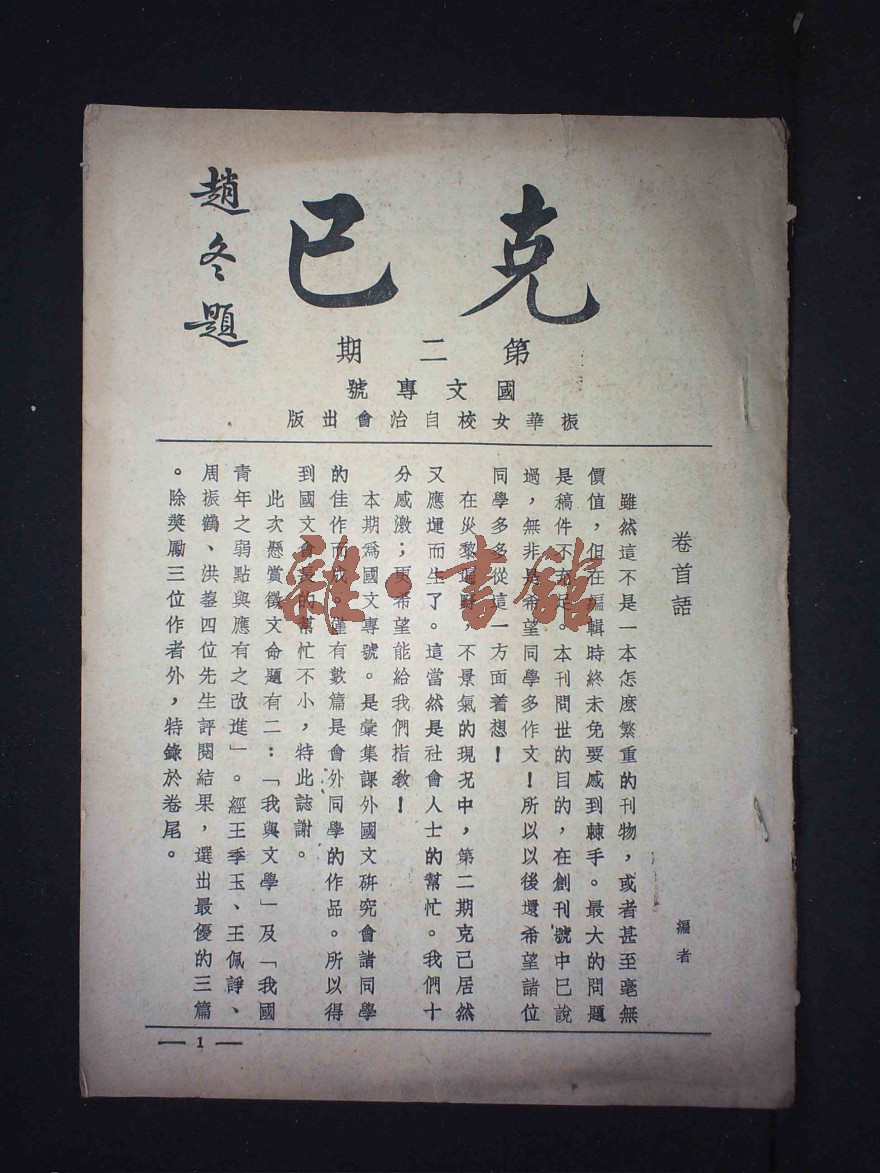 克己
趙冬題
第二期
國文專號
振華女校自治會出版
卷首語
編者
雖然這不是一本怎麼繁重的刊物,或者甚至毫無
價值,但在編輯時終未免要感到棘手。最大的問題
是稿件不足。本刊問世的目的,在創刊號中已說
過,無非是希望同學多作文!所以以後還希望諸位
同學多多從這一方面着想!
在災黎遍野,不景氣的現況中,第二期克己居然
又應運而生了。這當然是社會人士的幫忙。我們十
分感激;更希望能給我們指教!
本期爲國文專號。是彙集課外國文研究會諸同學
的佳作而成。僅有數篇是會外同學的作品。所以得
到國文會長的幫忙不小,特此誌謝。
此次懸賞徵文命題有二:「我與文學」及「我國
青年之弱點與應有之改進」。經王季玉、王佩諍、
周振鶴、洪鋆四位先生評閱結果,選出最優的三篇
。除獎勵三位作者外,特錄於卷尾。
— 1 —
雜·書館